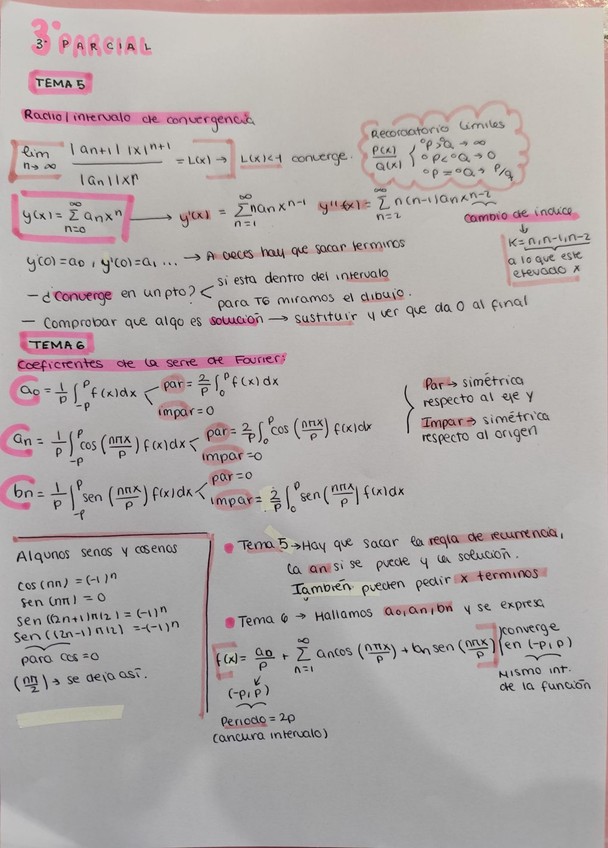 3º PARCIAL
3º PARCIAL
TEMA 5
Radio/intervalo de convergencia
lim n→∞ |an+1| |x|^n+1 / |an| |x|^n = L(x) → L(x)<1 converge.
Recordatorio límites
P(x)/Q(x) { ºP>ºQ → ∞
ºP<ºQ → 0
ºP=ºQ → P/Q
y(x) = ∑ n=0 ∞ an x^n → y'(x) = ∑ n=1 ∞ n an x^n-1 y''(x) = ∑ n=2 ∞ n(n-1) an x^n-2
cambio de índice
↓
K=n, n-1, n-2
a lo que este
elevado x
y(0)=a0, y'(0)=a1 ... → A veces hay que sacar terminos
- ¿Converge en un pto? < si esta dentro del intervalo
para T6 miramos el dibujo.
- Comprobar que algo es solución → sustituir y ver que da 0 al final
TEMA 6
Coeficientes de la serie de Fourier:
a0 = 1/p ∫-p^p f(x)dx < par = 2/p ∫0^p f(x)dx
impar = 0
an = 1/p ∫-p^p cos (nπx/p) f(x)dx < par = 2/p ∫0^p cos (nπx/p) f(x)dx
impar = 0
bn = 1/p ∫-p^p sen (nπx/p) f(x)dx < par = 0
impar = 2/p ∫0^p sen (nπx/p) f(x)dx
Par → simétrica
respecto al eje y
Impar → simétrica
respecto al origen
Algunos senos y cosenos
cos(nπ) = (-1)^n
sen(nπ) = 0
sen((2n+1)π/2) = (-1)^n
sen((2n-1)π/2) = -(-1)^n
para cos=0
(nπ/2) → se deja así.
• Tema 5 → Hay que sacar la regla de recurrencia,
la an si se puede y la solución.
También pueden pedir x terminos
• Tema 6 → Hallamos a0, an, bn y se expresa
f(x) = a0/p + ∑ n=1 ∞ an cos (nπx/p) + bn sen (nπx/p)
converge
en (-p, p)
Mismo int.
de la función
(-p, p)
Periodo = 2p
(anchura intervalo)